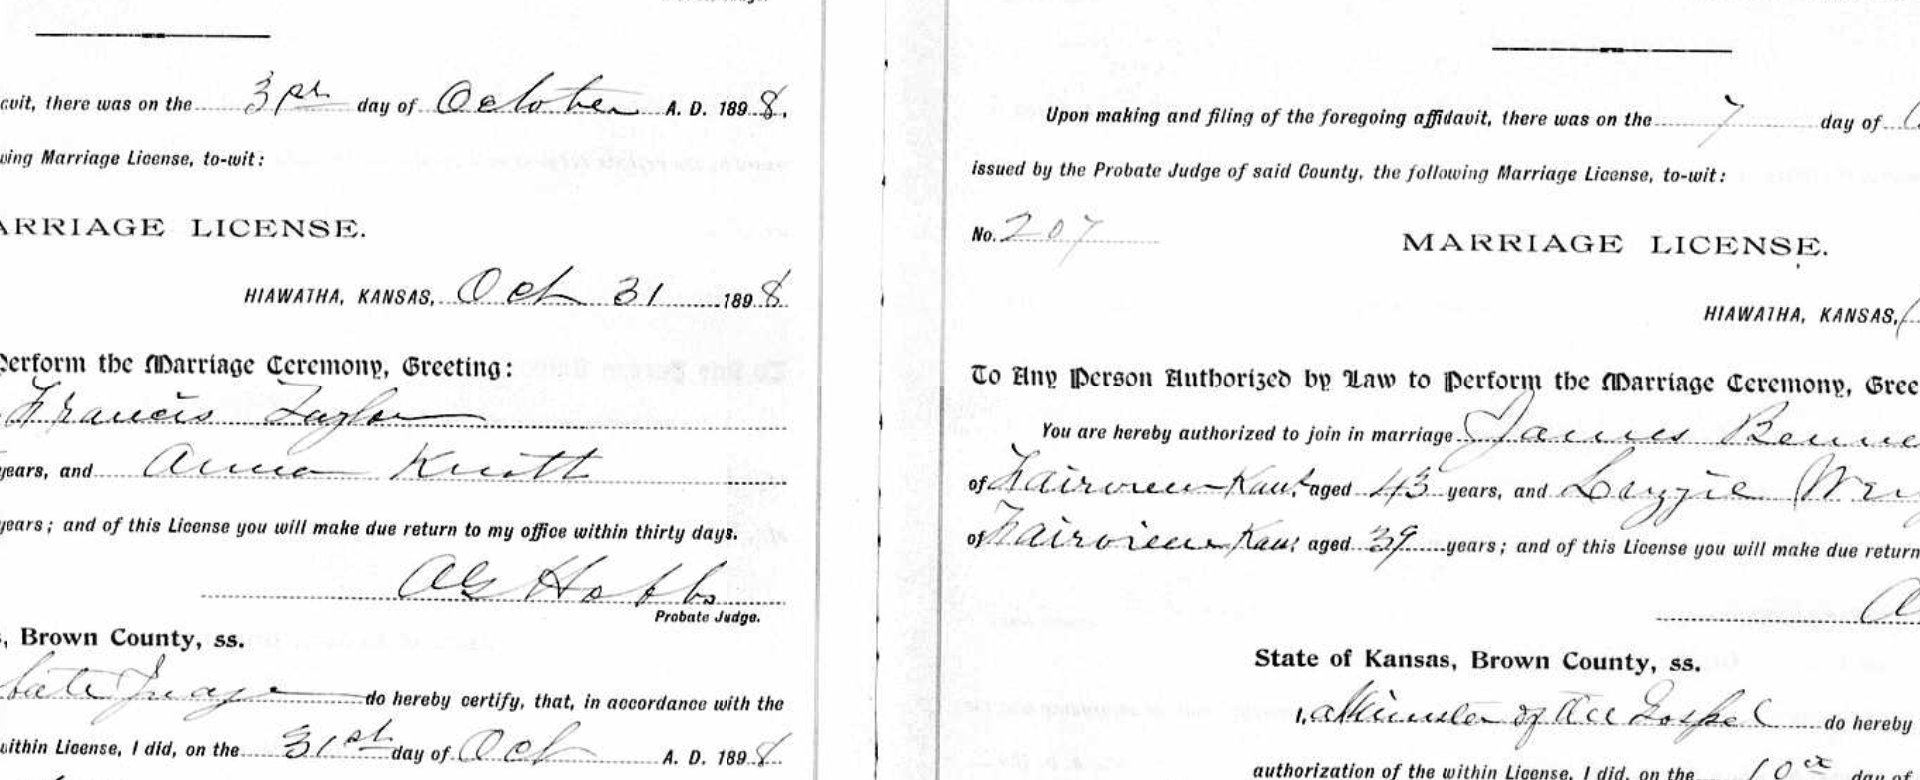 avit, there was on the 31st day of October A. D. 1898.
wing Marriage License, to-wit:
ARRIAGE LICENSE.
HIAWATHA, KANSAS, Oct 31 1898
Perform the Marriage Ceremony, Greeting:
Francis Taylor
years, and Anna Knott
years; and of this License you will make due return to my office within thirty days.
A G Hobbs
Probate Judge.
s, Brown County, ss.
bate Judge do hereby certify, that, in accordance with the
within License, I did, on the 31st day of Oct A. D. 1898
Upon making and filing of the foregoing affidavit, there was on the 7 day of
issued by the Probate Judge of said County, the following Marriage License, to-wit:
No. 207
MARRIAGE LICENSE.
HIAWATHA, KANSAS,
To Any Person Authorized by Law to Perform the Marriage Ceremony, Gree
You are hereby authorized to join in marriage James Benne
of Fairview Kans aged 43 years, and Lizzie
of Fairview Kans aged 39 years; and of this License you will make due return
A
State of Kansas, Brown County, ss.
I, a Minister of the Gospel do hereby
authorization of the within License, I did, on the 10th day of